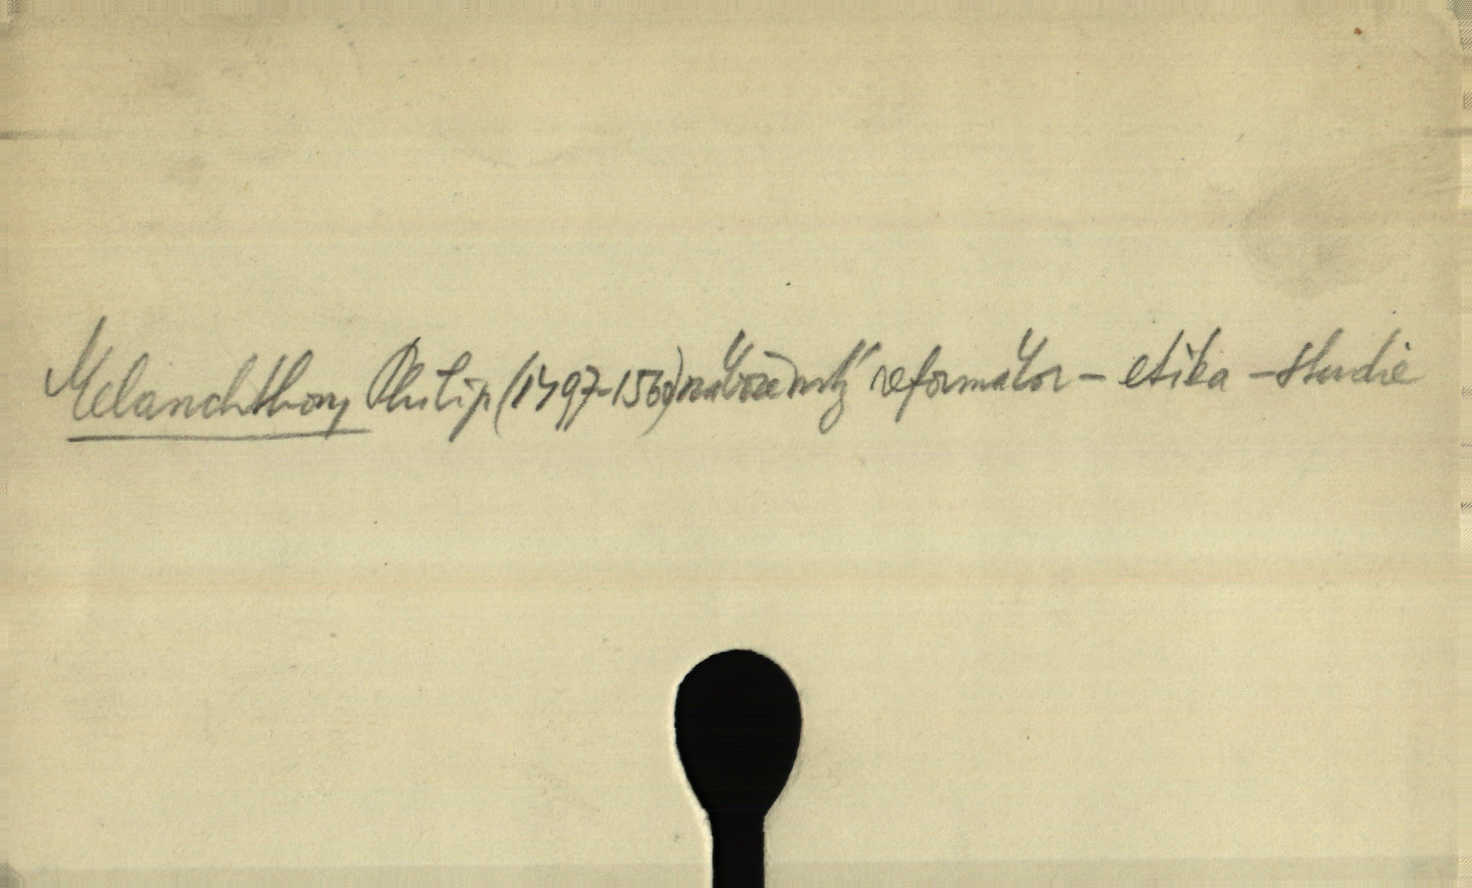 Melanchthon, Philip (1497-1560) náboženský reformátor - etika - studie